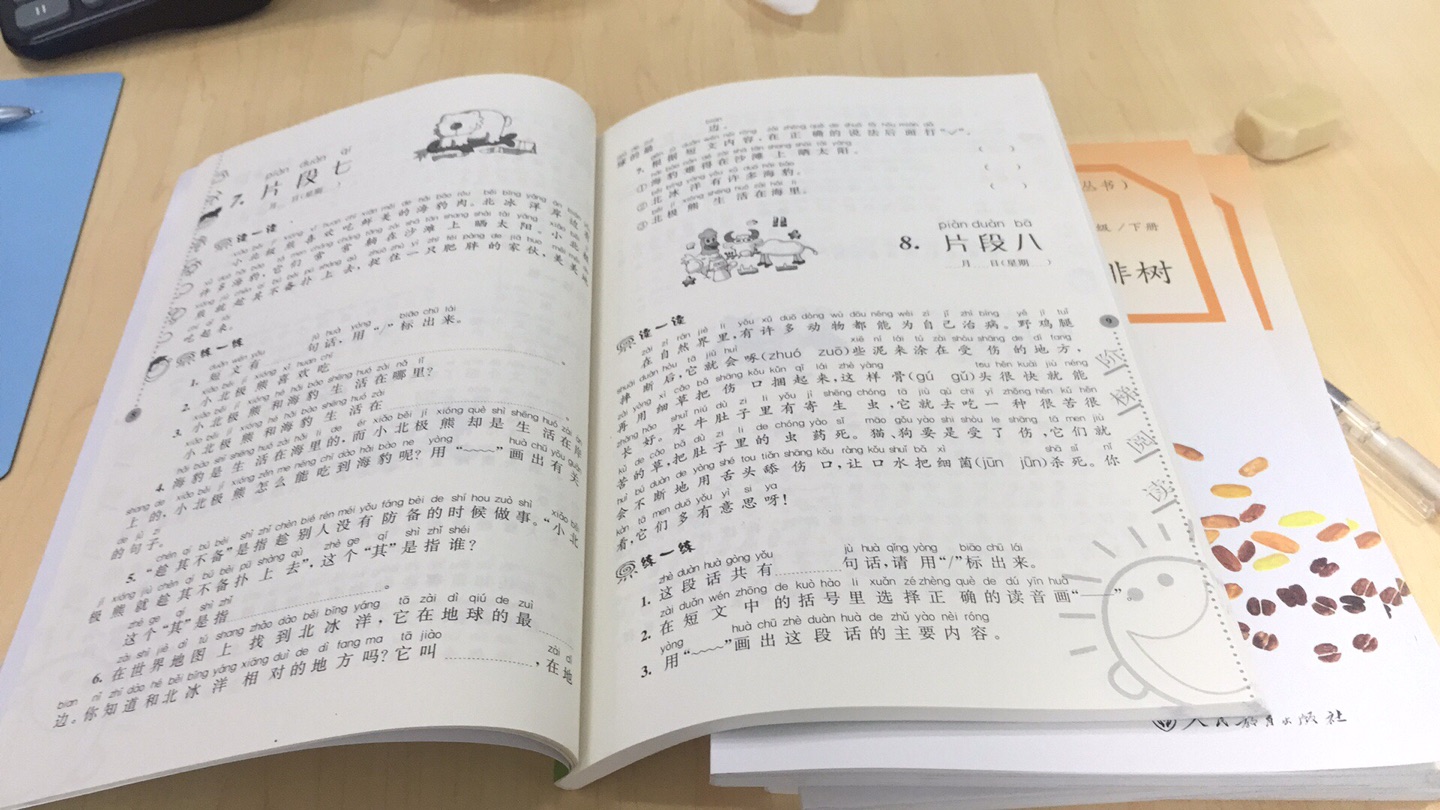 piàn duàn qī
7. 片段七
月 日(星期 )
读一读
小北极熊喜欢吃鲜美的海豹肉。北冰洋岸边有
许多海豹,它们常常躺在沙滩上晒太阳。小北极
熊就趁其不备扑上去,捉住一只肥胖的家伙,美美地
吃起来。
练一练
1. 短文有 句话,用“/”标出来。
2. 小北极熊喜欢吃 。
3. 小北极熊和海豹生活在哪里?
小北极熊和海豹生活在 。
4. 海豹是生活在海里的,而小北极熊却是生活在岸
上的,小北极熊怎么能吃到海豹呢?用“﹏﹏”画出有关
的句子。
5. “趁其不备”是指趁别人没有防备的时候做事。“小北
极熊就趁其不备扑上去”,这个“其”是指谁?
这个“其”是指 。
6. 在世界地图上找到北冰洋,它在地球的最
边。你知道和北冰洋相对的地方吗?它叫 ,在地
球的最 边。
7. 根据短文内容,在正确的说法后面打“✓”。
①海豹难得在沙滩上晒太阳。 ( )
②北冰洋有许多海豹。 ( )
③北极熊生活在海里。 ( )
piàn duàn bā
8. 片段八
月 日(星期 )
读一读
在自然界里,有许多动物都能为自己治病。野鸡腿
摔断后,它就会啄(zhuó zuō)些泥来涂在受伤的地方,
再用细草把伤口捆起来,这样骨(gú gǔ)头很快就能
长好。水牛肚子里有寄生虫,它就去吃一种很苦很
苦的草,把肚子里的虫药死。猫、狗要是受了伤,它们就
会不断地用舌头舔伤口,让口水把细菌(jūn jǖn)杀死。你
看,它们多有意思呀!
练一练
1. 这段话共有 句话,请用“/”标出来。
2. 在短文中的括号里选择正确的读音画“——”。
3. 用“﹏﹏”画出这段话的主要内容。
8
9
阶梯阅读
丛书)
级/下册
排树
人民教育出版社